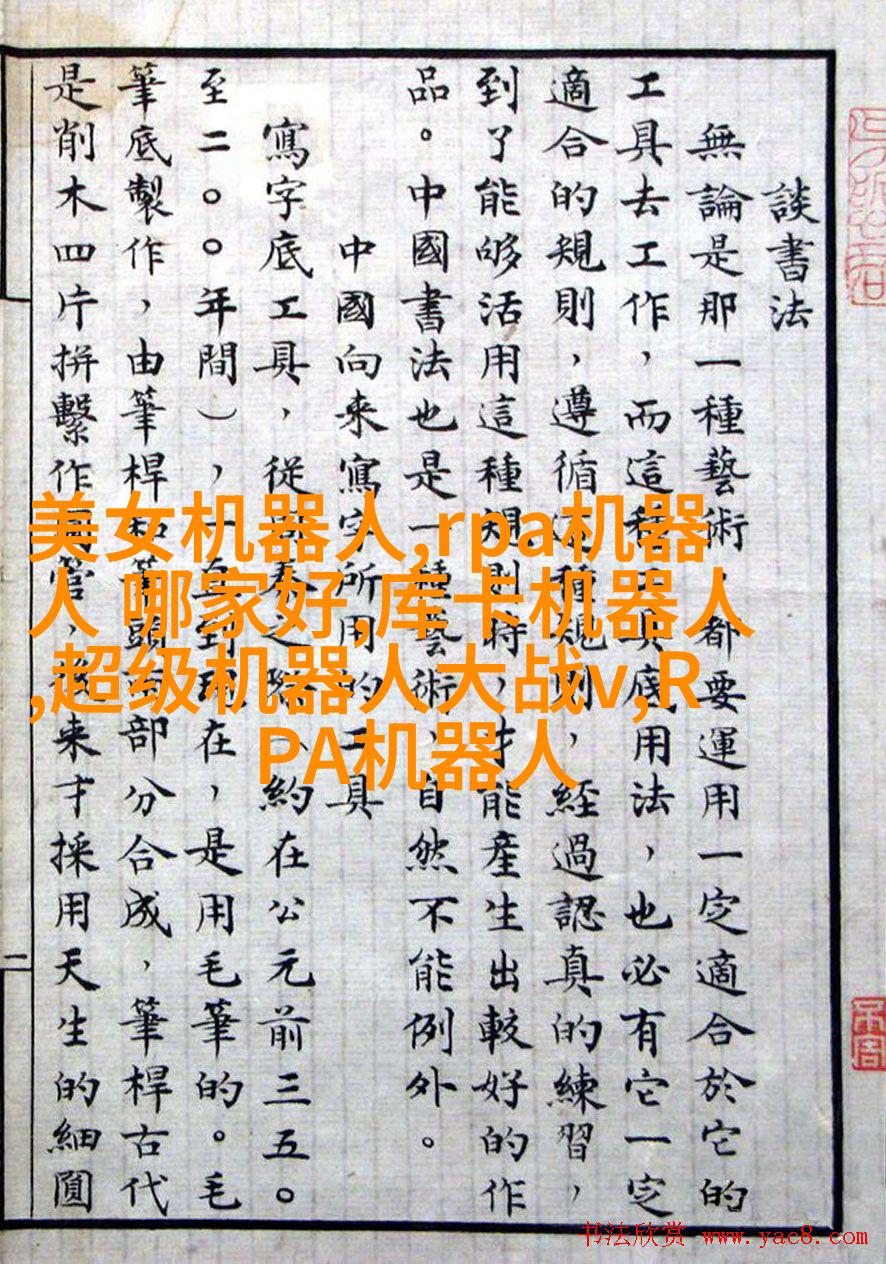 談書法
無論是那一種藝術，都要運用一定適合於它的
工具去工作，而這種工具底用法，也必有它一定
適合的規則，遵循這種規則，經過認真的練習，
到了能够活用這種規則時，才能產生出較好的作
品。中國書法也是一種藝術，自然不能例外。
中國向来寫字所用的工具
寫字底工具，從秦之際（約在公元前三五〇
至二〇〇年間），一直到現在，是用毛筆的。毛
筆底製作，由筆桿和筆頭兩部分合成，筆桿古代
是削木四片拼繫作管，後来才採用天生的細圓
二
美女机器人,rpa机器
人 哪家好,库卡机器人
,超级机器人大战v,R
PA机器人
书法欣赏 www.yac8.com